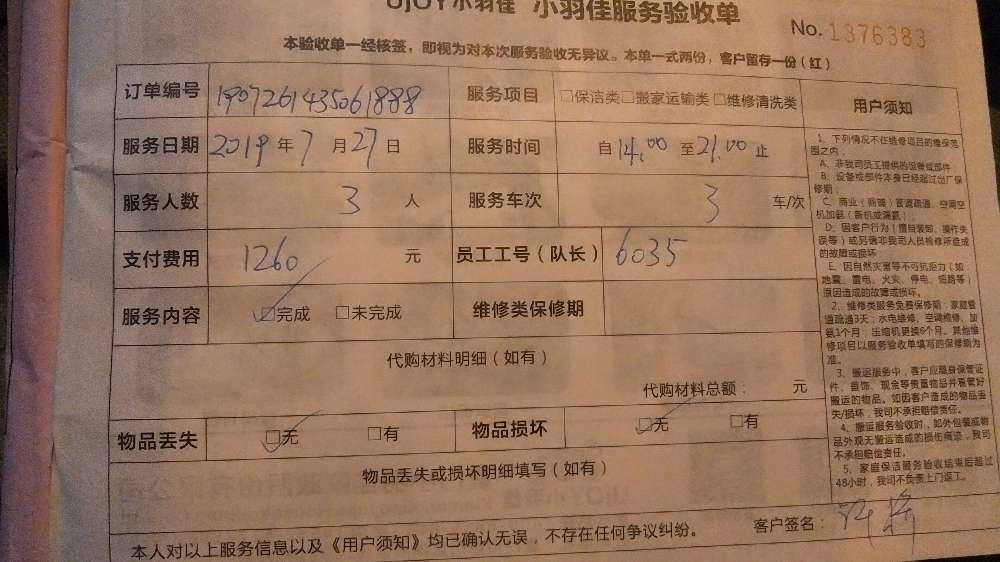 UjOY小羽佳 小羽佳服务验收单
No. 1376383
本验收单一经核签，即视为对本次服务验收无异议。本单一式两份，客户留存一份（红）
订单编号 1907261435061888 服务项目 □保洁类□搬家运输类□维修清洗类
服务日期 2019年7月27日 服务时间 自14:00至21:00止
服务人数 3人 服务车次 3车/次
支付费用 1260元 员工工号（队长） 6035
服务内容 ☑完成 □未完成 维修类保修期
代购材料明细（如有）
代购材料总额： 元
物品丢失 ☑无 □有 物品损坏 ☑无 □有
物品丢失或损坏明细填写（如有）
本人对以上服务信息以及《用户须知》均已确认无误，不存在任何争议纠纷。
客户签名：
用户须知
1、下列情况不在维修项目的维保范
围之内：
A、非我司员工提供的设备或部件
B、设备或部件本身已经超过出厂保
修期；
C、商业（商铺）管道疏通、空调空
机加氨（新机或漏氨）
D、因客户行为（擅自装卸、操作失
误等）或另请非我司人员检修所造成
的故障或损坏；
E、因自然灾害等不可抗拒力（如：
地震、雷电、火灾、停电、短路等）
原因造成的故障或损坏。
2、维修类服务免费保修期：家庭管
道疏通3天；水电维修、空调维修、加
氨1个月；压缩机更换6个月。其他维
修项目以服务验收单填写的保修期为
准。
3、搬运服务中，客户应随身保管证
件、首饰、现金等贵重物品并看管好
搬运的物品。如因客户造成的物品丢
失/损坏，我司不承担赔偿责任。
4、搬运服务验收时，如外包装或物
品外观无搬运造成的损伤痕迹，我司
不承担赔偿责任。
5、家庭保洁服务验收结束后超过
48小时，我司不负责上门返工。